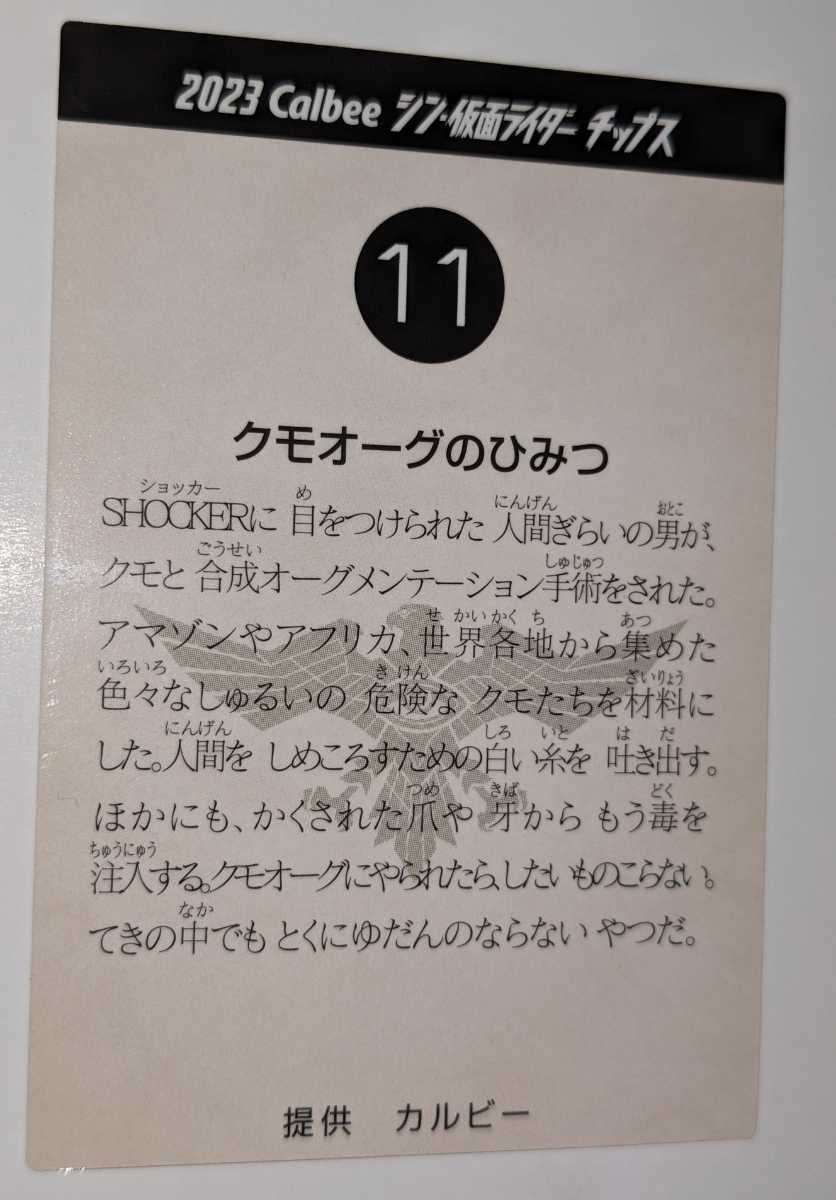 2023 Calbee シン・仮面ライダー チップス
11
クモオーグのひみつ
ショッカー め にんげん おとこ
SHOCKERに 目をつけられた 人間ぎらいの男が、
ごうせい しゅじゅつ
クモと 合成オーグメンテーション手術をされた。
せ かい かく ち あつ
アマゾンやアフリカ、世界各地から集めた
いろいろ き けん ざいりょう
色々なしゅるいの 危険な クモたちを材料に
にんげん しろ いと は だ
した。人間を しめころすための白い糸を 吐き出す。
つめ きば どく
ほかにも、かくされた爪や 牙から もう毒を
ちゅうにゅう
注入する。クモオーグにやられたら、したいものこらない。
なか
てきの中でも とくにゆだんのならない やつだ。
提供 カルビー